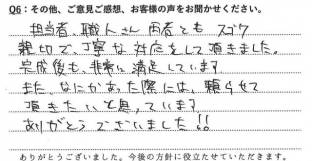 Q6：その他、ご意見ご感想、お客様の声をお聞かせください。
担当者、職人さん両者とも スゴク
親切で、丁寧な対応をして頂きました。
完成後も、非常に満足しています
また、なにかあった際には、頼らせて
頂きたいと思っています
ありがとうございました!!
ありがとうございました。今後の方針に役立たせていただきます。